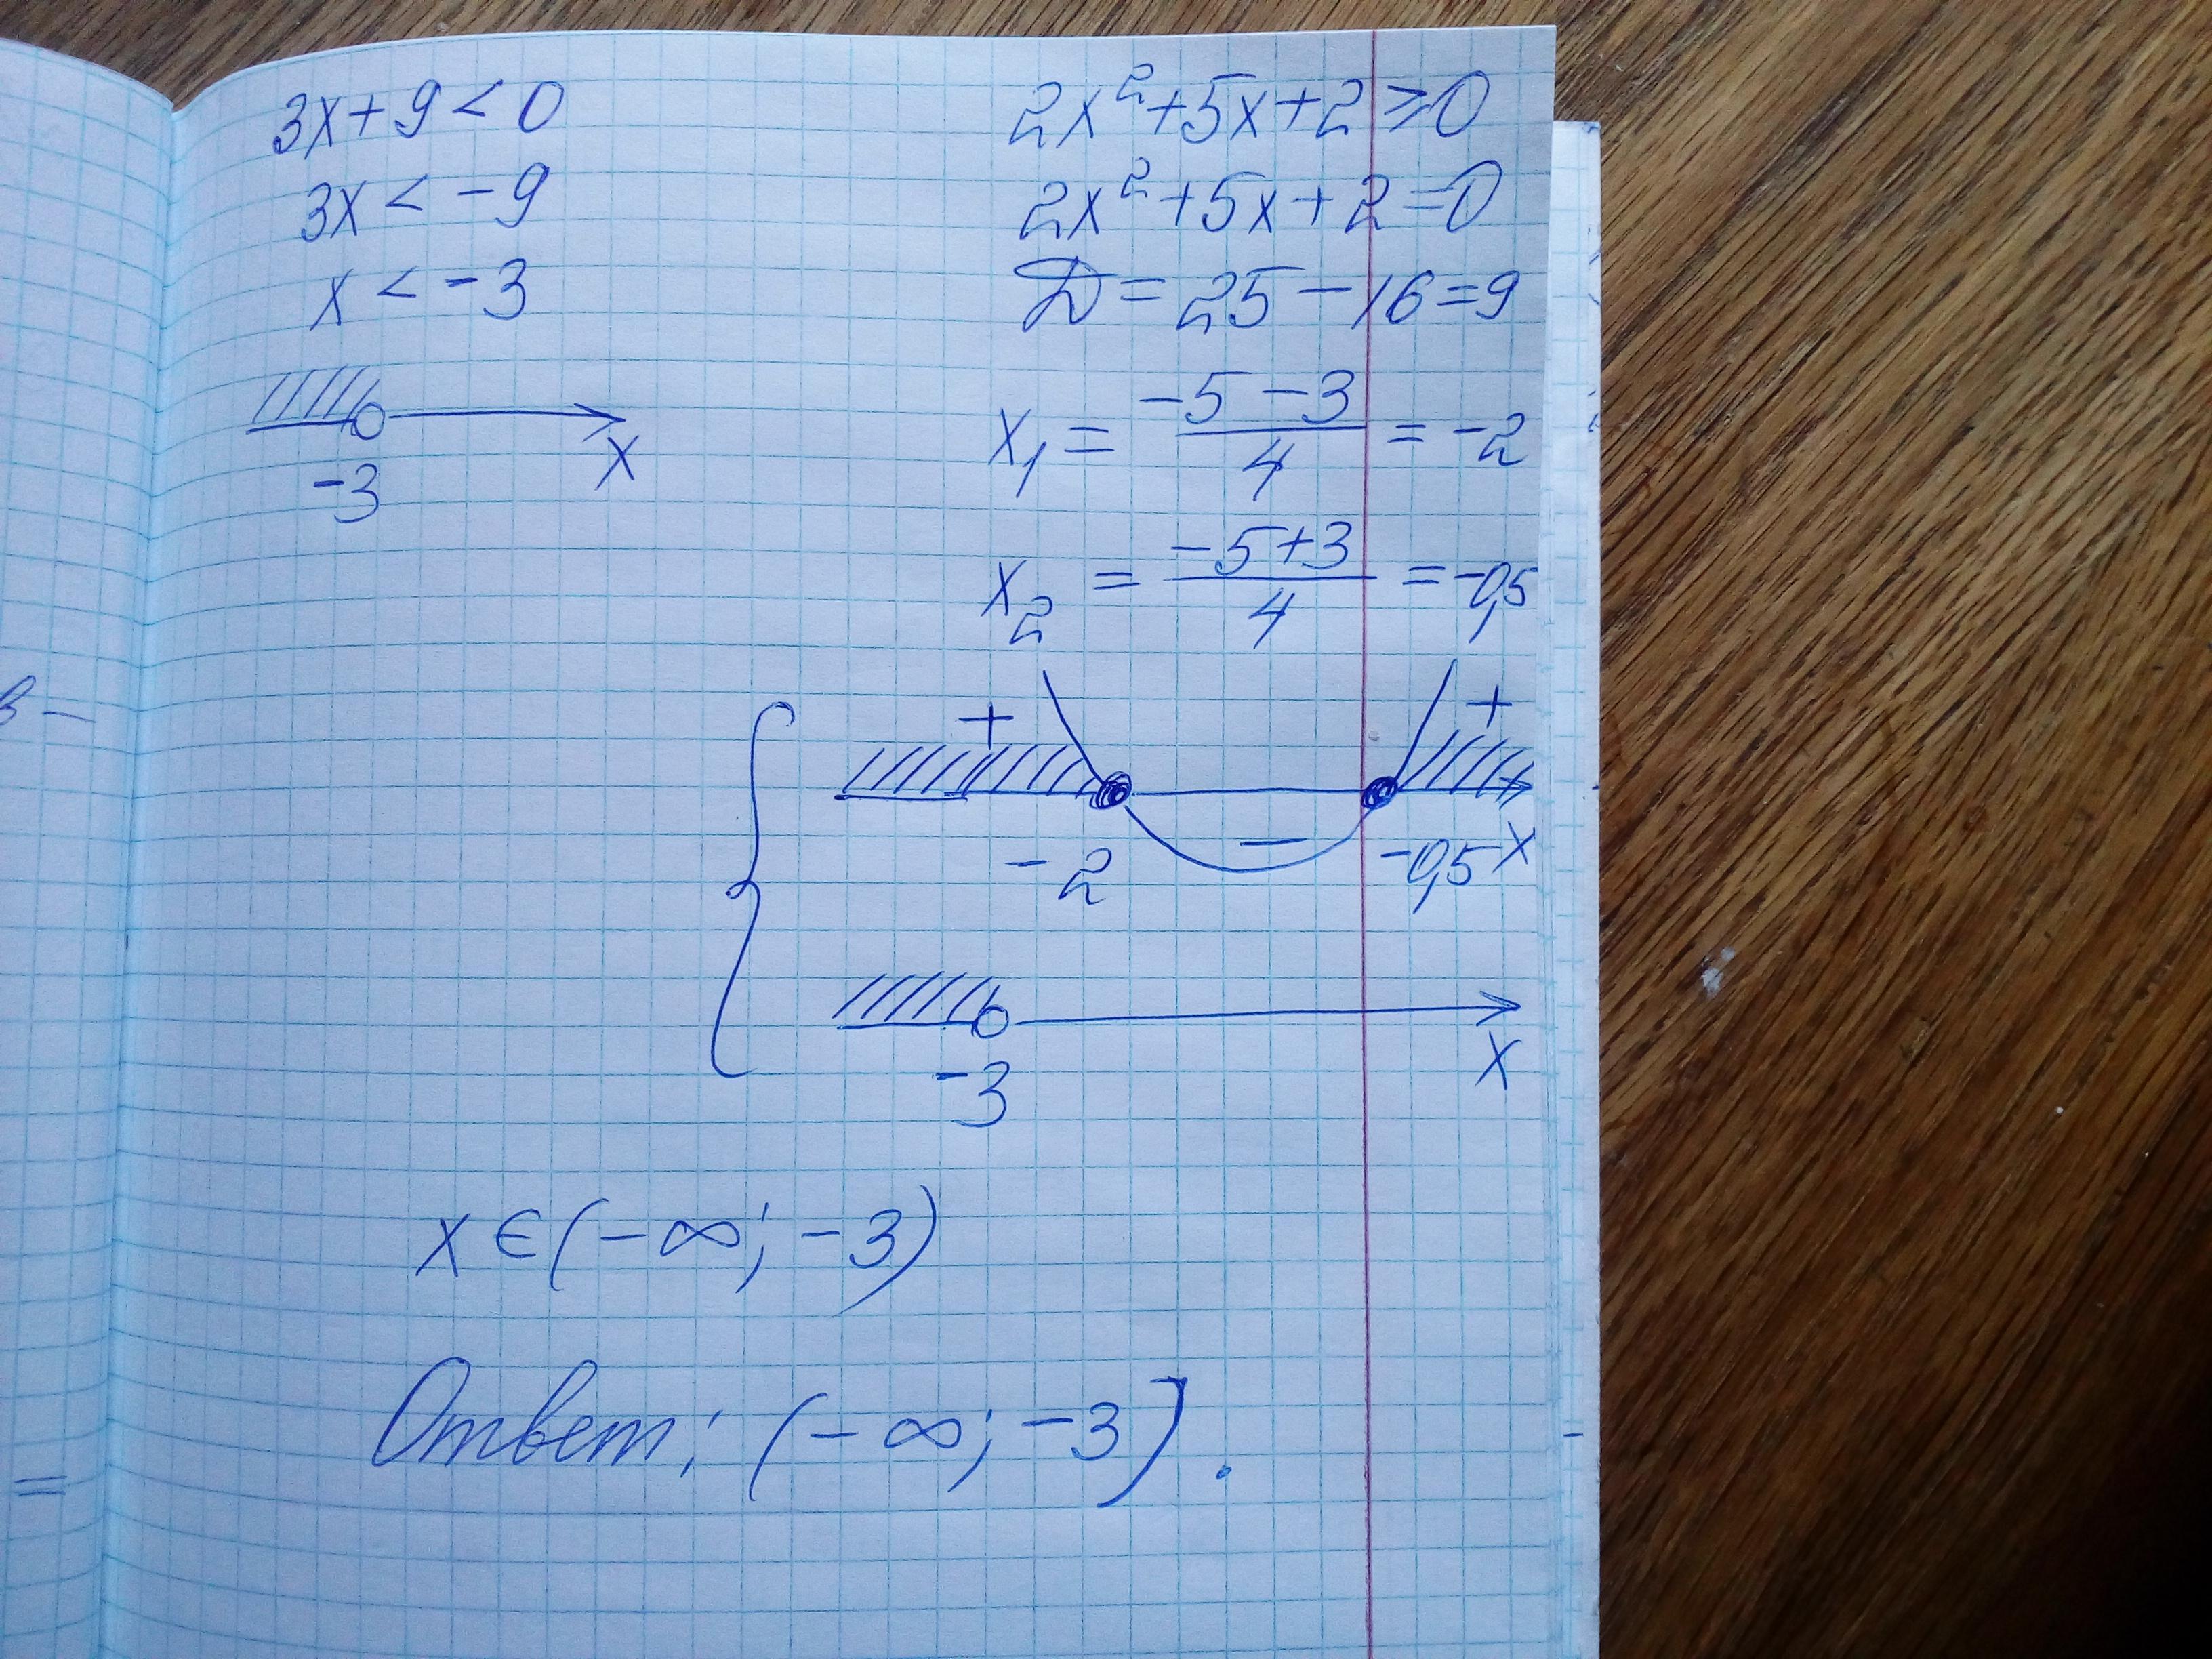 3x+9<0
3x<-9
x<-3
-3 x
2x²+5x+2≥0
2x²+5x+2=0
D=25-16=9
x₁ = (-5-3)/4 = -2
x₂ = (-5+3)/4 = -0,5
+ +
-
-2 -0,5 x
-3 x
x∈(-∞;-3)
Ответ: (-∞;-3).
в-
=